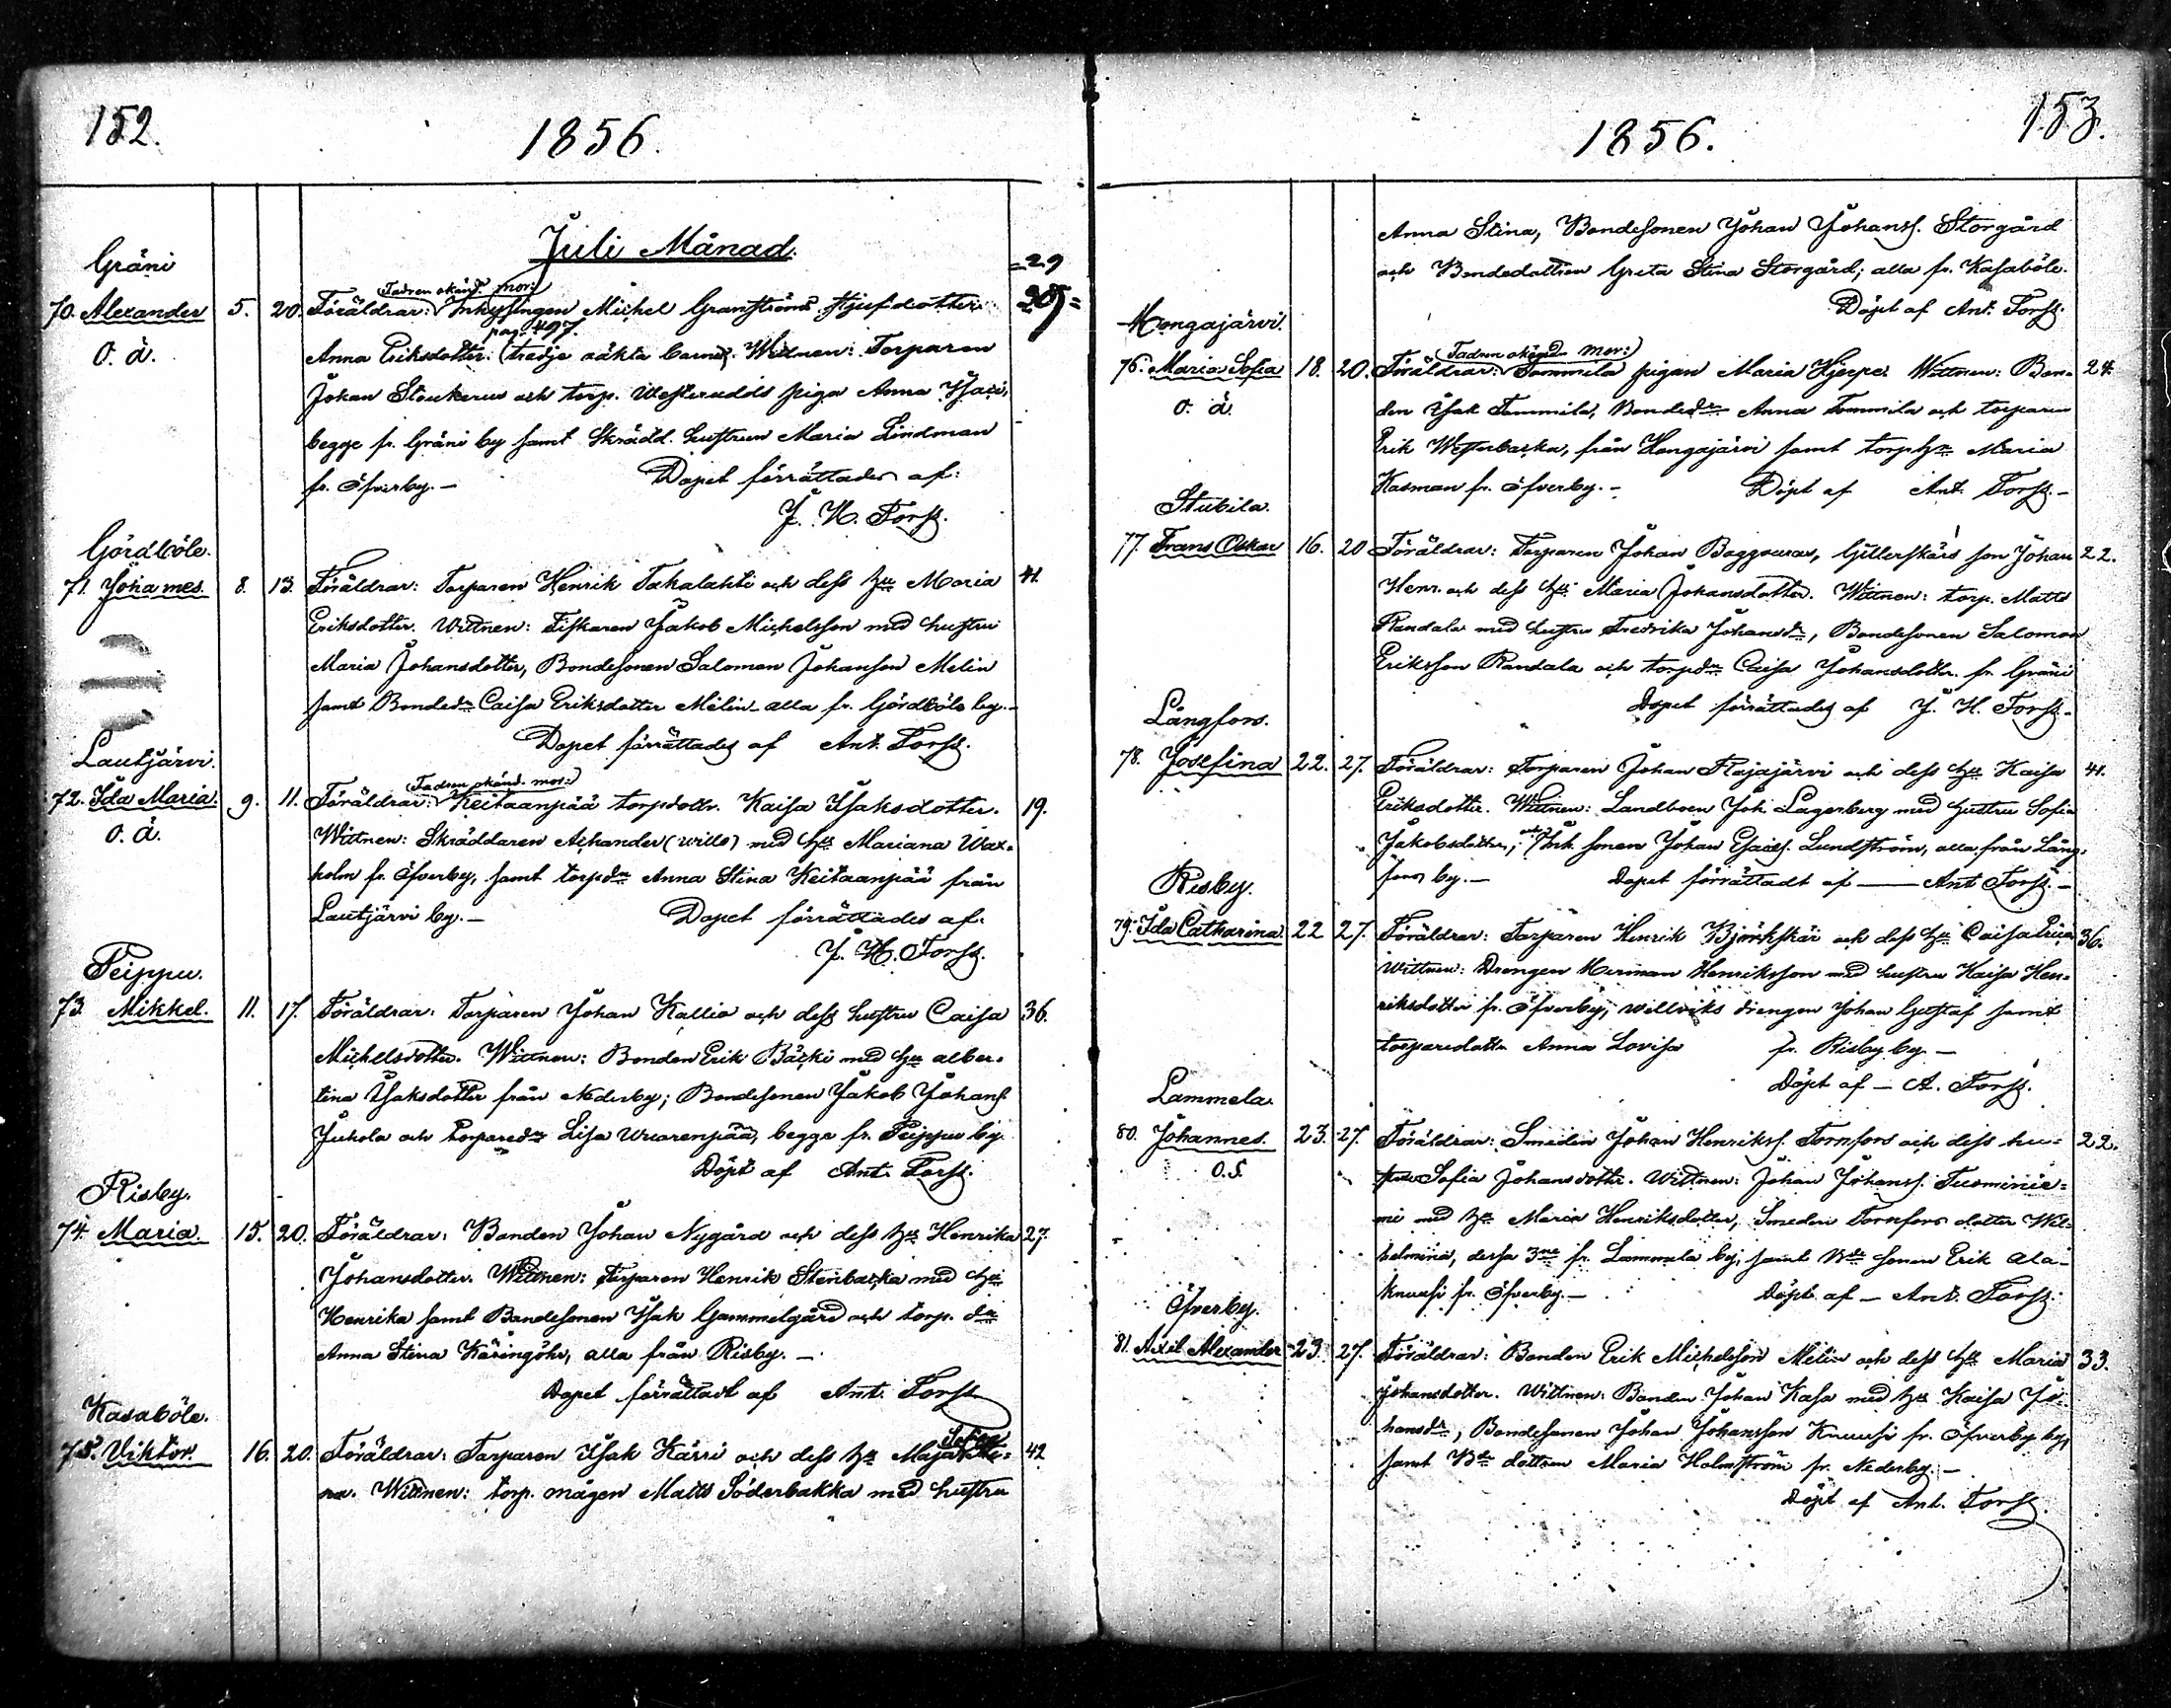 152.
1856.
Juli Månad.
Gräni
70. Alexander 5. 20. Föräldrar: Fadren okänd. mor: Inhysingen Michel Granströms styfdotter 29
O. ä.
Anna Eriksdotter: pag. 497. (tredje oäkta barnet). Wittnen: Torparen
Johan Stoukerus och torp. Westerudds piga Anna Isaci,
begge fr. Gräni by samt Skrädd. hustrun Maria Lindman
fr. Öfverby. — Dopet förrättades af:
J. H. Forss.
Gördböle.
71. Johannes. 8. 13. Föräldrar: Torparen Henrik Takalahti och dess hu Maria 41.
Eriksdotter. Wittnen: Fiskaren Jakob Michelsson med hustru
Maria Johansdotter, Bondesonen Salomon Johansson Melin
samt Bondedn Caisa Eriksdotter Melin alla fr. Gördböle by. —
Dopet förrättades af Ant. Forss.
Lautjärvi.
72. Ida Maria. 9. 11. Föräldrar: Fadren okänd. mor: Keitaanpää torpdottr. Kaisa Isaksdotter. 19.
O. Ä.
Wittnen: Skräddaren Achander (wills) med hu Mariana Wax-
holm fr. Öfverby, samt torpdn Anna Stina Keitaanpää från
Lautjärvi by. — Dopet förrättades af:
J. H. Forss.
Peippu.
73. Mikkel. 11. 17. Föräldrar: Torparen Johan Kallio och dess hustru Caisa 36.
Michelsdotter. Wittnen: Bonden Erik Bäcki med hu alber-
tina Isaksdotter från Nederby; Bondesonen Jakob Johans
Juhola och torparedn Lisa Wuorenpää, begge fr. Peippu by.
Döpt af Ant. Forss.
Risby.
74. Maria. 15. 20. Föräldrar: Bonden Johan Nygård och dess hu Henrika 27.
Johansdotter. Wittnen: Torparen Henrik Stenbacka med hu
Henrika samt Bondesonen Isak Gammelgård och torp. dn
Anna Stina Käringöhr, alla från Risby. —
Dopet förrättadt af Ant. Forss
Kasaböle.
75. Viktor. 16. 20. Föräldrar: Torparen Isak Kärri och dess hu Maja Sofia 42
Wittnen: torp. mågen Matts Söderbakka med hustru
1856.
153.
Anna Stina, Bondesonen Johan Johanss. Storgård
och Bondedottren Greta Stina Storgård; alla fr. Kasaböle.
Döpt af Ant. Forss.
Hongajärvi.
76. Maria Sofia 18. 20. Föräldrar: Fadren okänd mor: Tommila pigan Maria Hjerpe. Wittnen: Bon- 24.
O. ä.
den Isak Tommila, Bondedn Anna Tommila och torparen
Erik Westerbacka, från Hongajärvi samt torphn Maria
Kasman fr. Öfverby. — Döpt af Ant. Forss. —
Stubila.
77. Frans Oskar 16. 20 Föräldrar: Torparen Johan Baggouras, Gitterskärs son Johan 22.
Henr. och dess hu Maria Johansdotter. Wittnen: torp. Matts
Randala med hustru Fredrika Johansdn, Bondesonen Salomon
Eriksson Randala och torpdn Caisa Johansdotter. fr. Gräni
Dopet förrättades af J. H. Forss.
Långfors.
78. Josefina 22. 27. Föräldrar: Torparen Johan Rajajärvi och dess hu Kaisa 41.
Eriksdotter. Wittnen: Landboen Joh. Lagerberg med hustru Sofia
Jakobsdotter, och Inh. sonen Johan Esaiss. Lundström, alla från Lång-
fors by. — Dopet förrättadt af — Ant Forss. —
Risby.
79. Ida Catharina. 22 27. Föräldrar: Torparen Henrik Björkskär och dess hu Caisa Erica 36.
Wittnen: Drengen Herman Henriksson med hustru Kaisa Hen-
riksdotter fr. Öfverby; willviks drengen Johan Gustaf samt
torparedottr Anna Lovisa fr. Risby by. —
Döpt af — A. Forss.
Lammela.
80. Johannes. 23. 27. Föräldrar: Smeden Johan Henrikss. Tornfors och dess hu- 22.
O.S.
stru Sofia Johansdotter. Wittnen: Johan Johanss. Tuominie-
mi med hu Maria Henriksdotter, Smeden Tornfors dotter Wil-
helmina, dessa 3ne fr. Lammela by, samt Bde sonen Erik Ala-
knuusi fr. Öfverby. — Döpt af — Ant. Forss.
Öfverby.
81. Axel Alexander 23. 27. Föräldrar: Bonden Erik Michelsson Melin och dess hu Maria 33.
Johansdotter. Wittnen: Bonden Johan Kasa med hu Kaisa Jo-
hansdr, Bondesonen Johan Johansson Knuusi fr. Öfverby by,
samt Bde dottren Maria Holmström fr. Nederby. —
Döpt af Ant. Forss.